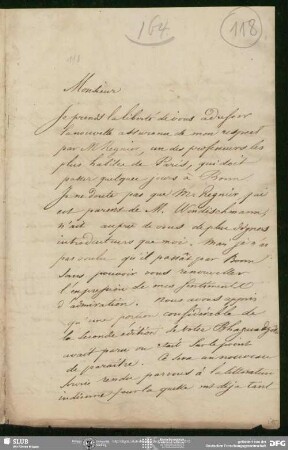 164
118
118
Monsieur
Je prends la liberté de vous adresser
la nouvelle assurance de mon respect
par Mr Regnier, un des professeurs les
plus habiles de Paris, qui doit
passer quelques jours à Bonn.
Je ne doute pas que Mr Regnier qui
est parent de M. Windischmann
n'ait auprès de vous de plus dignes
introducteurs que moi. Mais je n'ai
pas voulu qu'il passât par Bonn
sans pouvoir vous renouveller
l'expression de mes sentiments
d'admiration. Nous avons appris
qu'une portion considérable de
la seconde édition de votre Bhagavadgita
avait paru ou était sur le point
de paraître. Ce sera un nouveau
service rendu par vous à la littérature
indienne, pour laquelle vous déjà tant
SLUB
DFG